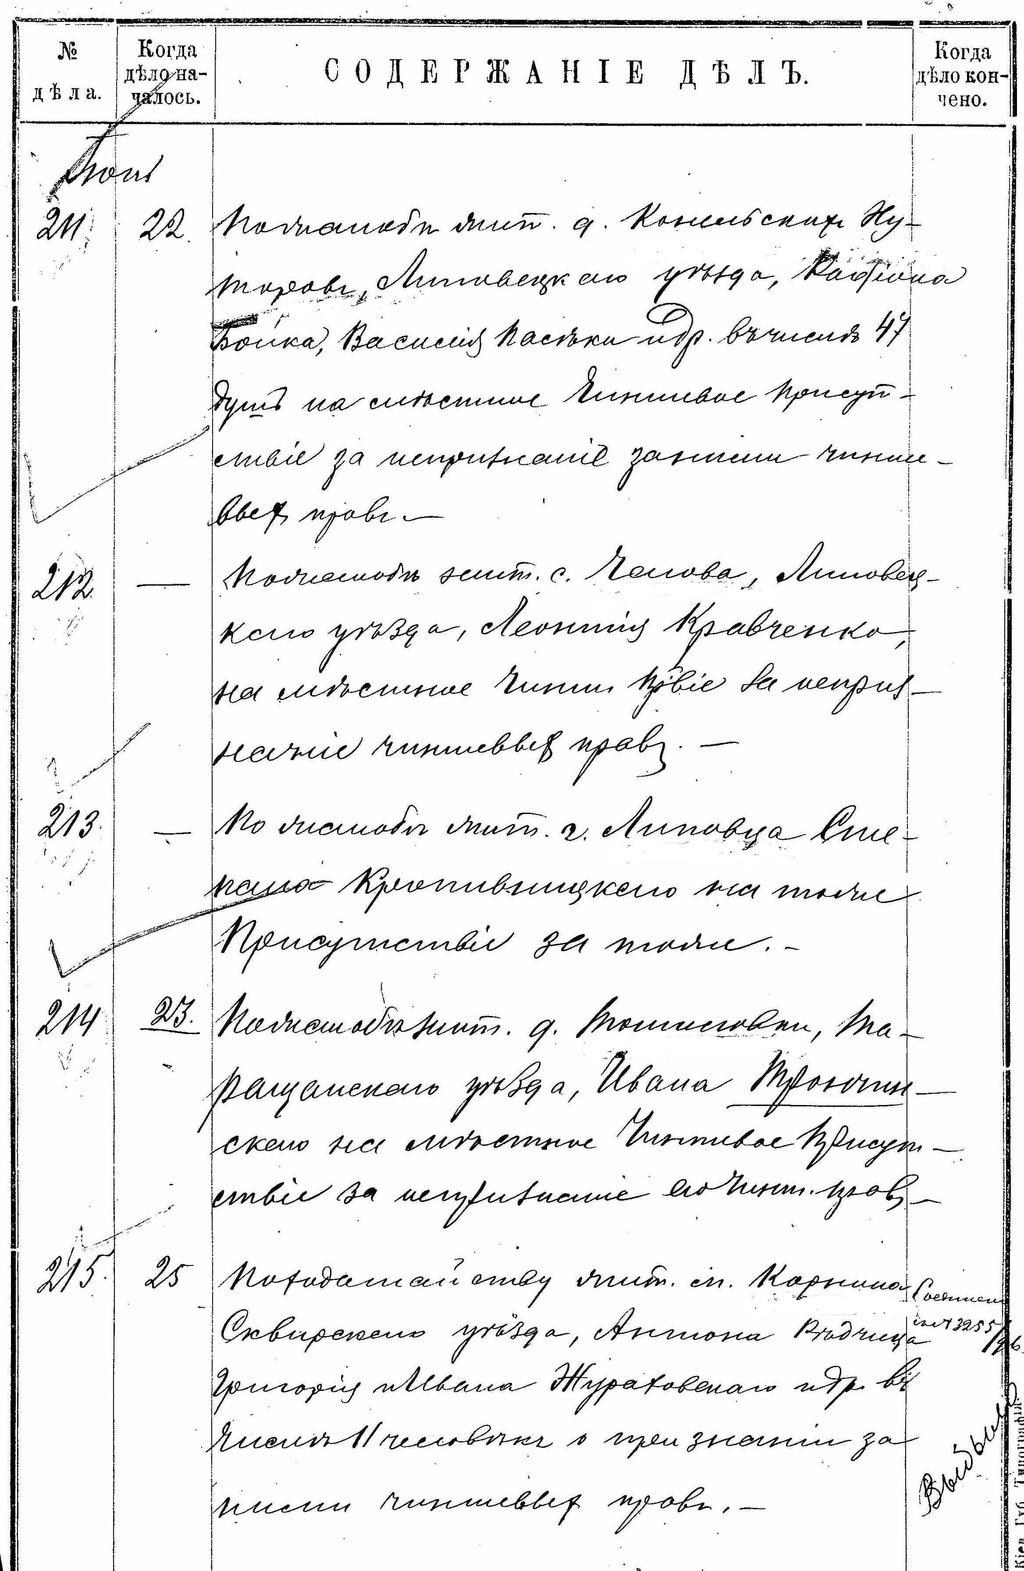 № дѣла.
Когда дѣло на-чалось.
СОДЕРЖАНІЕ ДѢЛЪ.
Когда дѣло кон-чено.
211. 22. По жалобѣ жит. д. Конельскихъ Ху-
торовъ, Липовецкаго уѣзда,
Бойка, Василія Пасѣки и др. въ числѣ 47
душъ на мѣстное Чиншевое Присут-
ствіе за непризнаніе за ними чинше-
выхъ правъ.—
212. — По жалобѣ жит. с. Чагова, Липовец-
каго уѣзда, Леонтія Кравченко,
на мѣстное Чинш. Првіе за неприз-
наніе чиншевыхъ правъ.—
213. — По жалобѣ жит. г. Липовца Сте-
пана Кропивницкаго на тоже
Присутствіе за тоже.—
214 23. По жалобѣ жит. д. Томиловки, Та-
ращанскаго уѣзда, Ивана Трончин-
скаго на мѣстное Чиншевое Присут-
ствіе за непризнаніе его чинш. правъ—
215. 25 По ходатайству жит. м. Корнина
Сквирскаго уѣзда, Антона
Григорія и Ивана Жураховскаго и др. въ
числѣ 11 человѣкъ о признаніи за
ними чиншевыхъ правъ.—
3255
Кіев. Губ. Типографія.